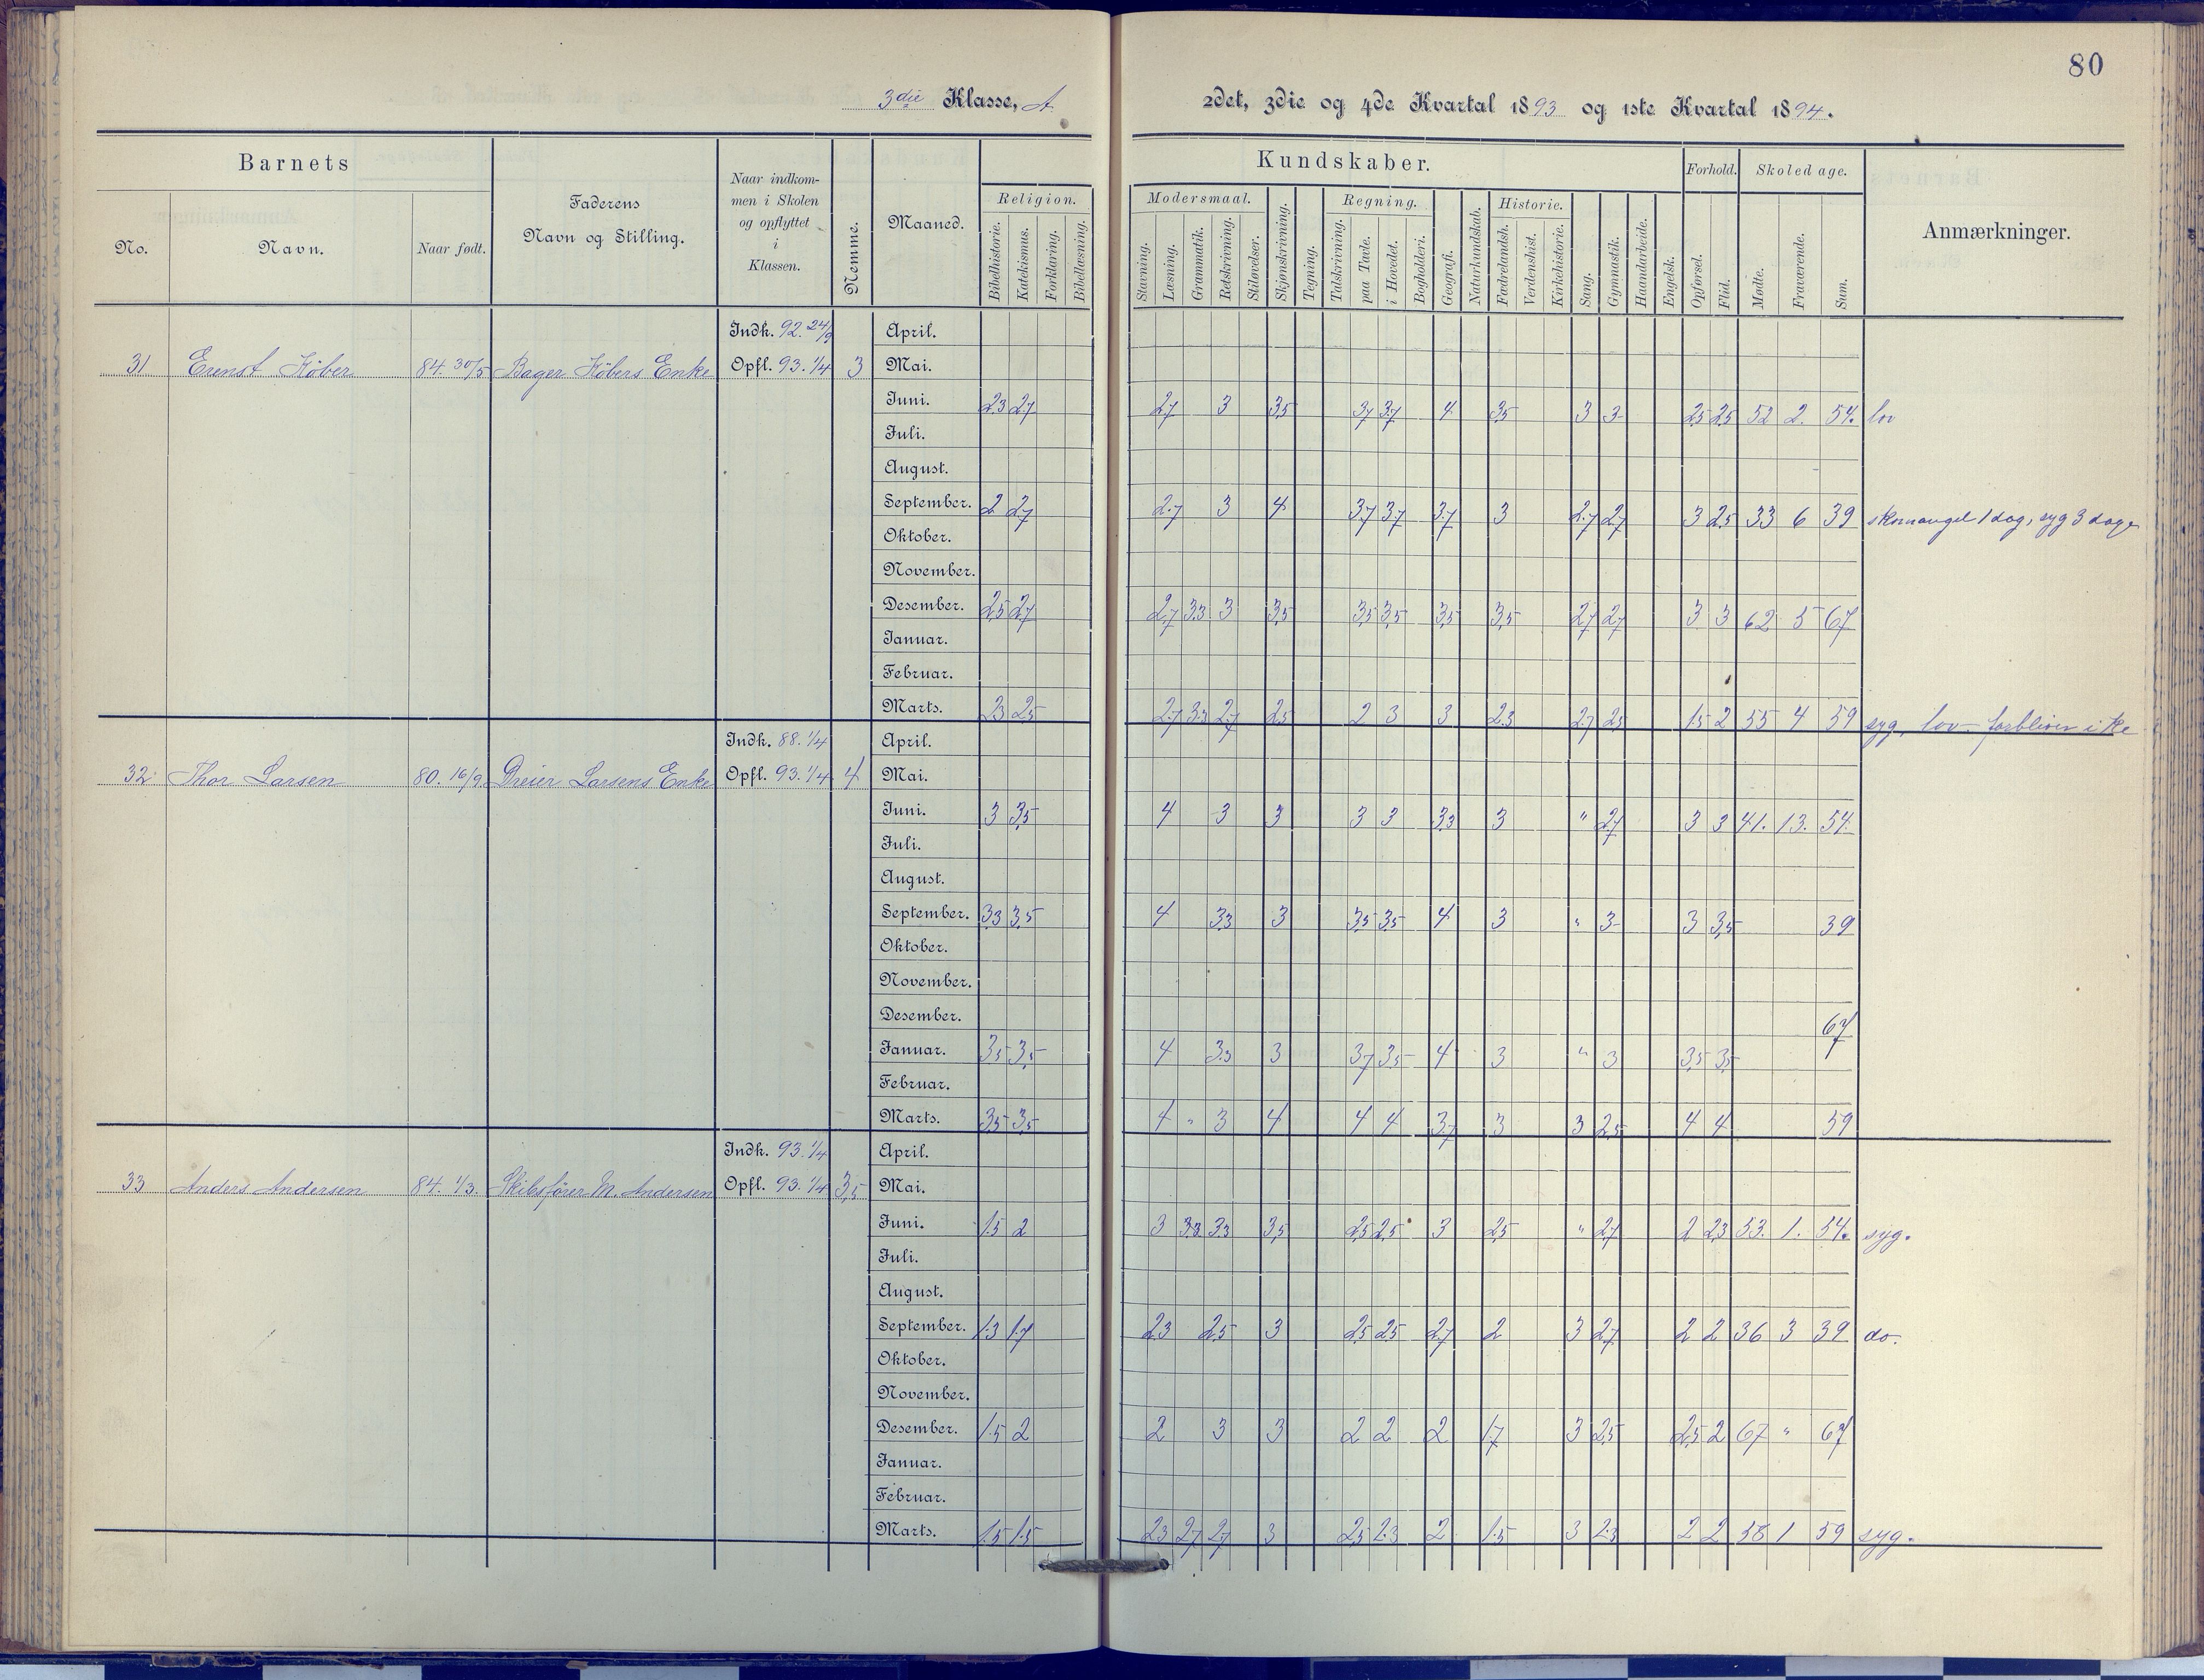 80
3die Klasse, A
2det, 3die og 4de Kvartal 1893 og 1ste Kvartal 1894.
Barnets
No.
Navn.
Naar født.
Faderens
Navn og Stilling.
Naar indkom-
men i Skolen
og opflyttet
i
Klassen.
Nemme.
Maaned.
Kundskaber.
Religion.
Bibelhistorie.
Katekismus.
Forklaring.
Bibellæsning.
Modersmaal.
Stavning.
Læsning.
Grammatik.
Retskrivning.
Stiløvelser.
Skjønskrivning.
Tegning.
Regning.
Talskrivning.
paa Tavle.
i Hovedet.
Bogholderi.
Geografi.
Naturkundskab.
Historie.
Fædrelandsh.
Verdenshist.
Kirkehistorie.
Sang.
Gymnastik.
Haandarbeide.
Engelsk.
Forhold.
Opførsel.
Flid.
Skoledage.
Mødte.
Fraværende.
Sum.
Anmærkninger.
Indk. 92. 24/9 April.
31 Ernst Köber 84. 30/5 Bager Köbers Enke Opfl. 93. 1/4 3 Mai.
Juni. 2,3 2,7 2,7 3 3,5 3,7 3,7 4 3,5 3 3 2,5 2,5 52 2. 54. lov
Juli.
August.
September. 2 2,7 2,7 3 4 3,7 3,7 3,7 3 2,7 2,7 3 2,5 33 6 39 skomangel 1 dag, syg 3 dage
Oktober.
November.
Desember. 2,5 2,7 2,7 3,3 3 3,5 3,5 3,5 3,5 3,5 2,7 2,7 3 3 62 5 67
Januar.
Februar.
Marts. 2,3 2,5 2,7 3,3 2,7 2,5 2 3 3 2,3 2,7 2,5 1,5 2 55 4 59 syg, lov - forbliver ikke
Indk. 88. 1/4 April.
32 Thor Larsen 80. 16/9 Dreier Larsens Enke Opfl. 93. 1/4 4 Mai.
Juni. 3 3,5 4 3 3 3 3 3,3 3 " 2,7 3 3 41. 13. 54.
Juli.
August.
September. 3,3 3,5 4 3,3 3 3,5 3,5 4 3 " 3 3 3,5 39
Oktober.
November.
Desember. 67
Januar. 3,5 3,5 4 3,3 3 3,7 3,5 4 3 " 3 3,5 3,5
Februar.
Marts. 3,5 3,5 4 " 3 4 4 4 3,7 3 3 2,5 4 4 59
Indk. 93. 1/4 April.
33 Anders Andersen 84. 1/3. Skibsfører M. Andersen Opfl. 93. 1/4 3,5 Mai.
Juni. 1,5 2 3 3,3 3,3 3,5 2,5 2,5 3 2,5 " 2,7 2 2,3 53. 1. 54. syg.
Juli.
August.
September. 1,3 1,7 2,3 2,5 3 2,5 2,5 2,7 2 3 2,7 2 2 36 3 39 do.
Oktober.
November.
Desember. 1,5 2 2 3 3 2 2 2 1,7 3 2,5 2,5 2 67 " 67
Januar.
Februar.
Marts. 1,5 1,5 2,3 2,7 2,7 3 2,5 2,3 2 1,5 3 2,3 2 2 58 1 59 syg.